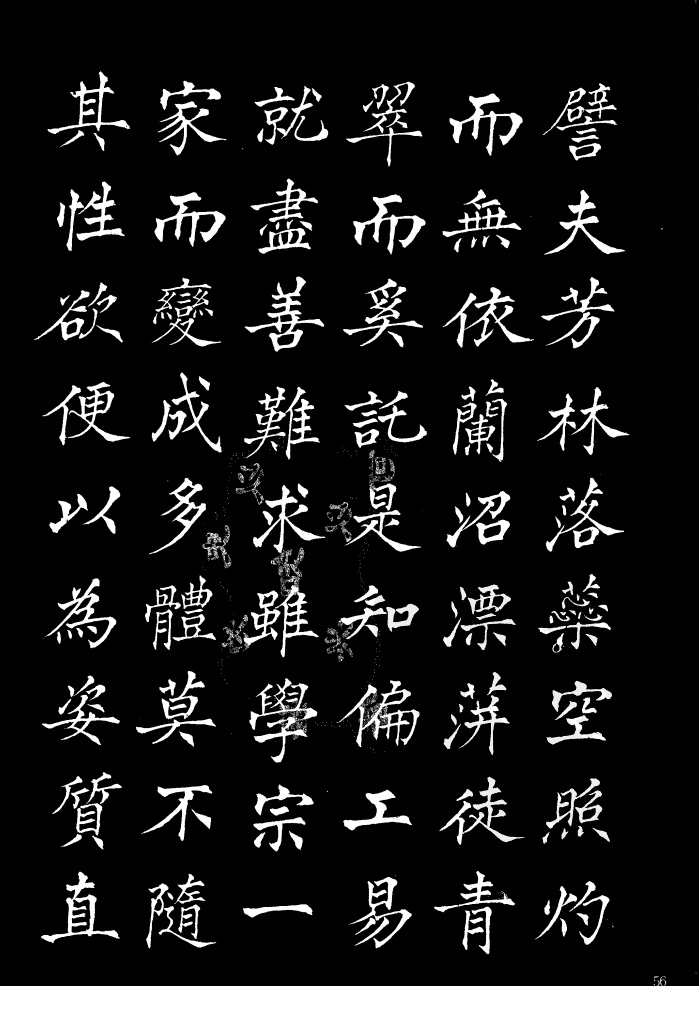 譬夫芳林落蘂空照灼
而無依蘭沼漂蓱徒青
翠而奚託是知偏工易
就盡善難求雖學宗一
家而變成多體莫不隨
其性欲便以為姿質直
56